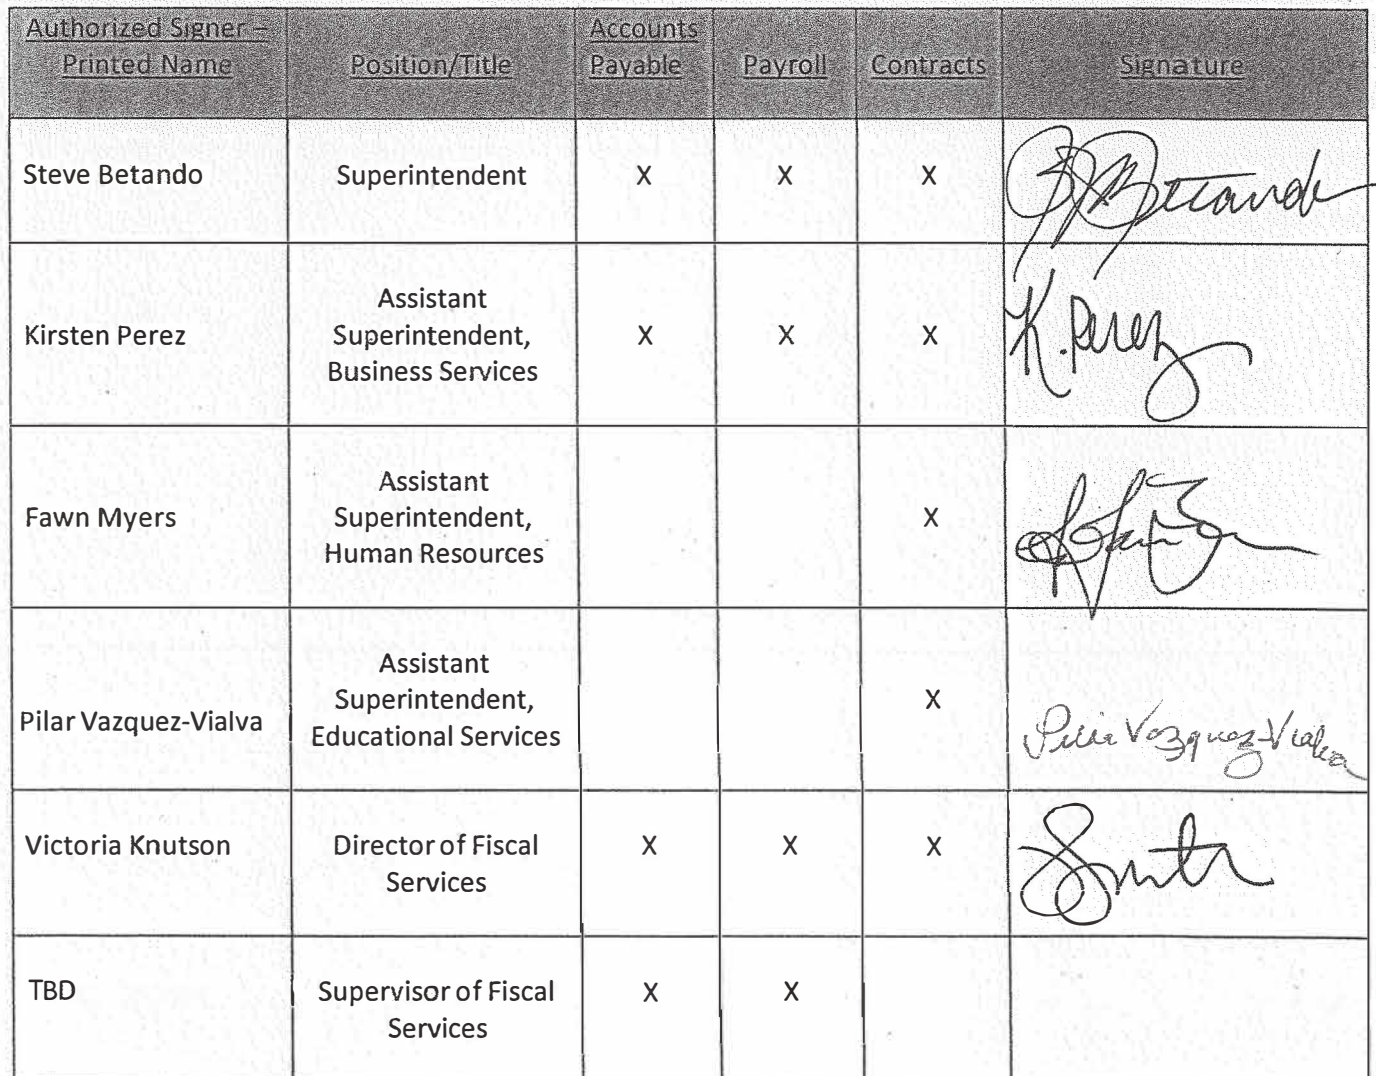 Authorized Signer –
Printed Name
Position/Title
Accounts
Payable
Payroll
Contracts
Signature
Steve Betando
Superintendent
X
X
X
Betando
Kirsten Perez
Assistant
Superintendent,
Business Services
X
X
X
K. Perez
Fawn Myers
Assistant
Superintendent,
Human Resources
X
Pilar Vazquez-Vialva
Assistant
Superintendent,
Educational Services
X
Pilar Vazquez-Vialva
Victoria Knutson
Director of Fiscal
Services
X
X
X
TBD
Supervisor of Fiscal
Services
X
X